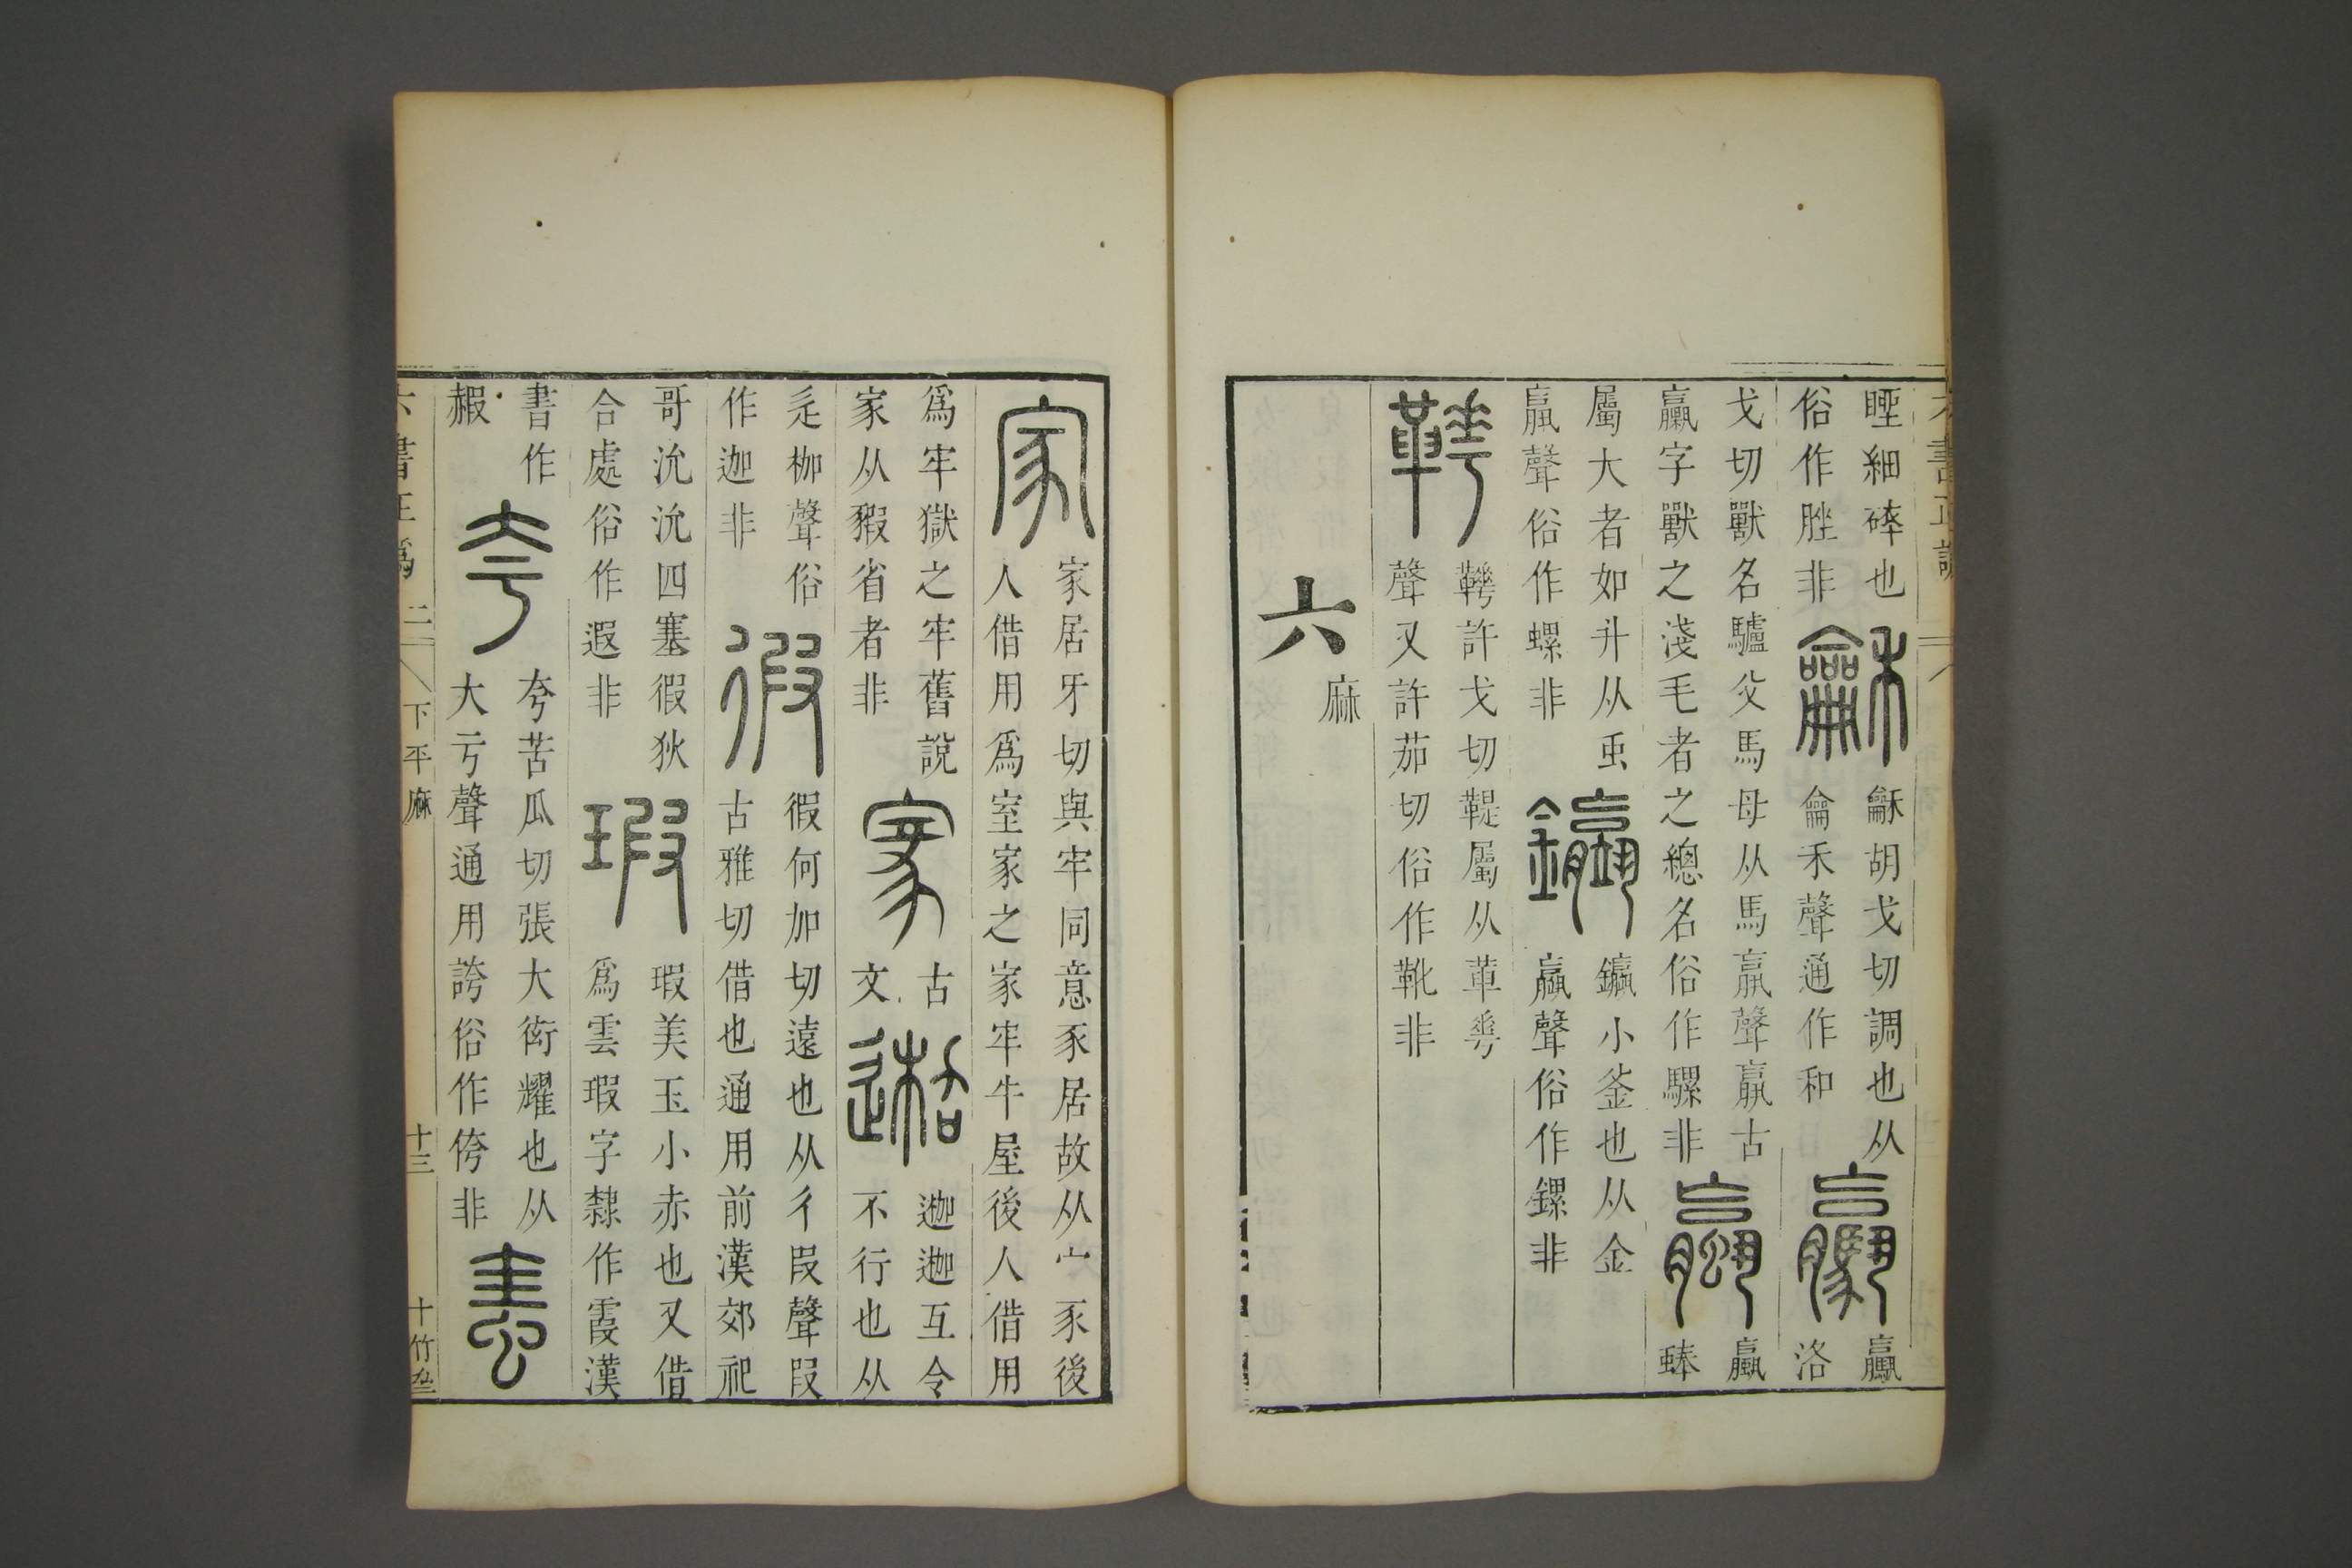 六書正譌
脞細碎也
俗作脞非
龢
龢胡戈切調也从
龠禾聲通作和
驘
驘洛
戈切獸名驢父馬母从馬𦝠聲𦝠古
臝字獸之淺毛者之總名俗作騾非
蠃
蠃蜯
屬大者如升从虫
𦝠聲俗作螺非
鑼
鑼小釜也从金
蠃聲俗作鏍非
鞾
鞾許戈切鞮屬从革𠌶
聲又許茄切俗作靴非
六
麻
家
家居牙切與牢同意豕居故从宀豕後
人借用爲室家之家牢牛屋後人借用
爲牢獄之牢舊說
家从豭省者非
家
古
文
迦
迦迦互令
不行也从
辵枷聲俗
作迦非
徦
徦何加切遠也从彳叚聲叚
古雅切借也通用前漢郊祀
哥沇沇四塞徦狄
合處俗作遐非
瑕
瑕美玉小赤也又借
爲雲瑕字隸作霞漢
書作
赮
夸
夸苦瓜切張大衒耀也从
大亏聲通用誇俗作侉非
六書正譌
二
下平麻
十三
十竹